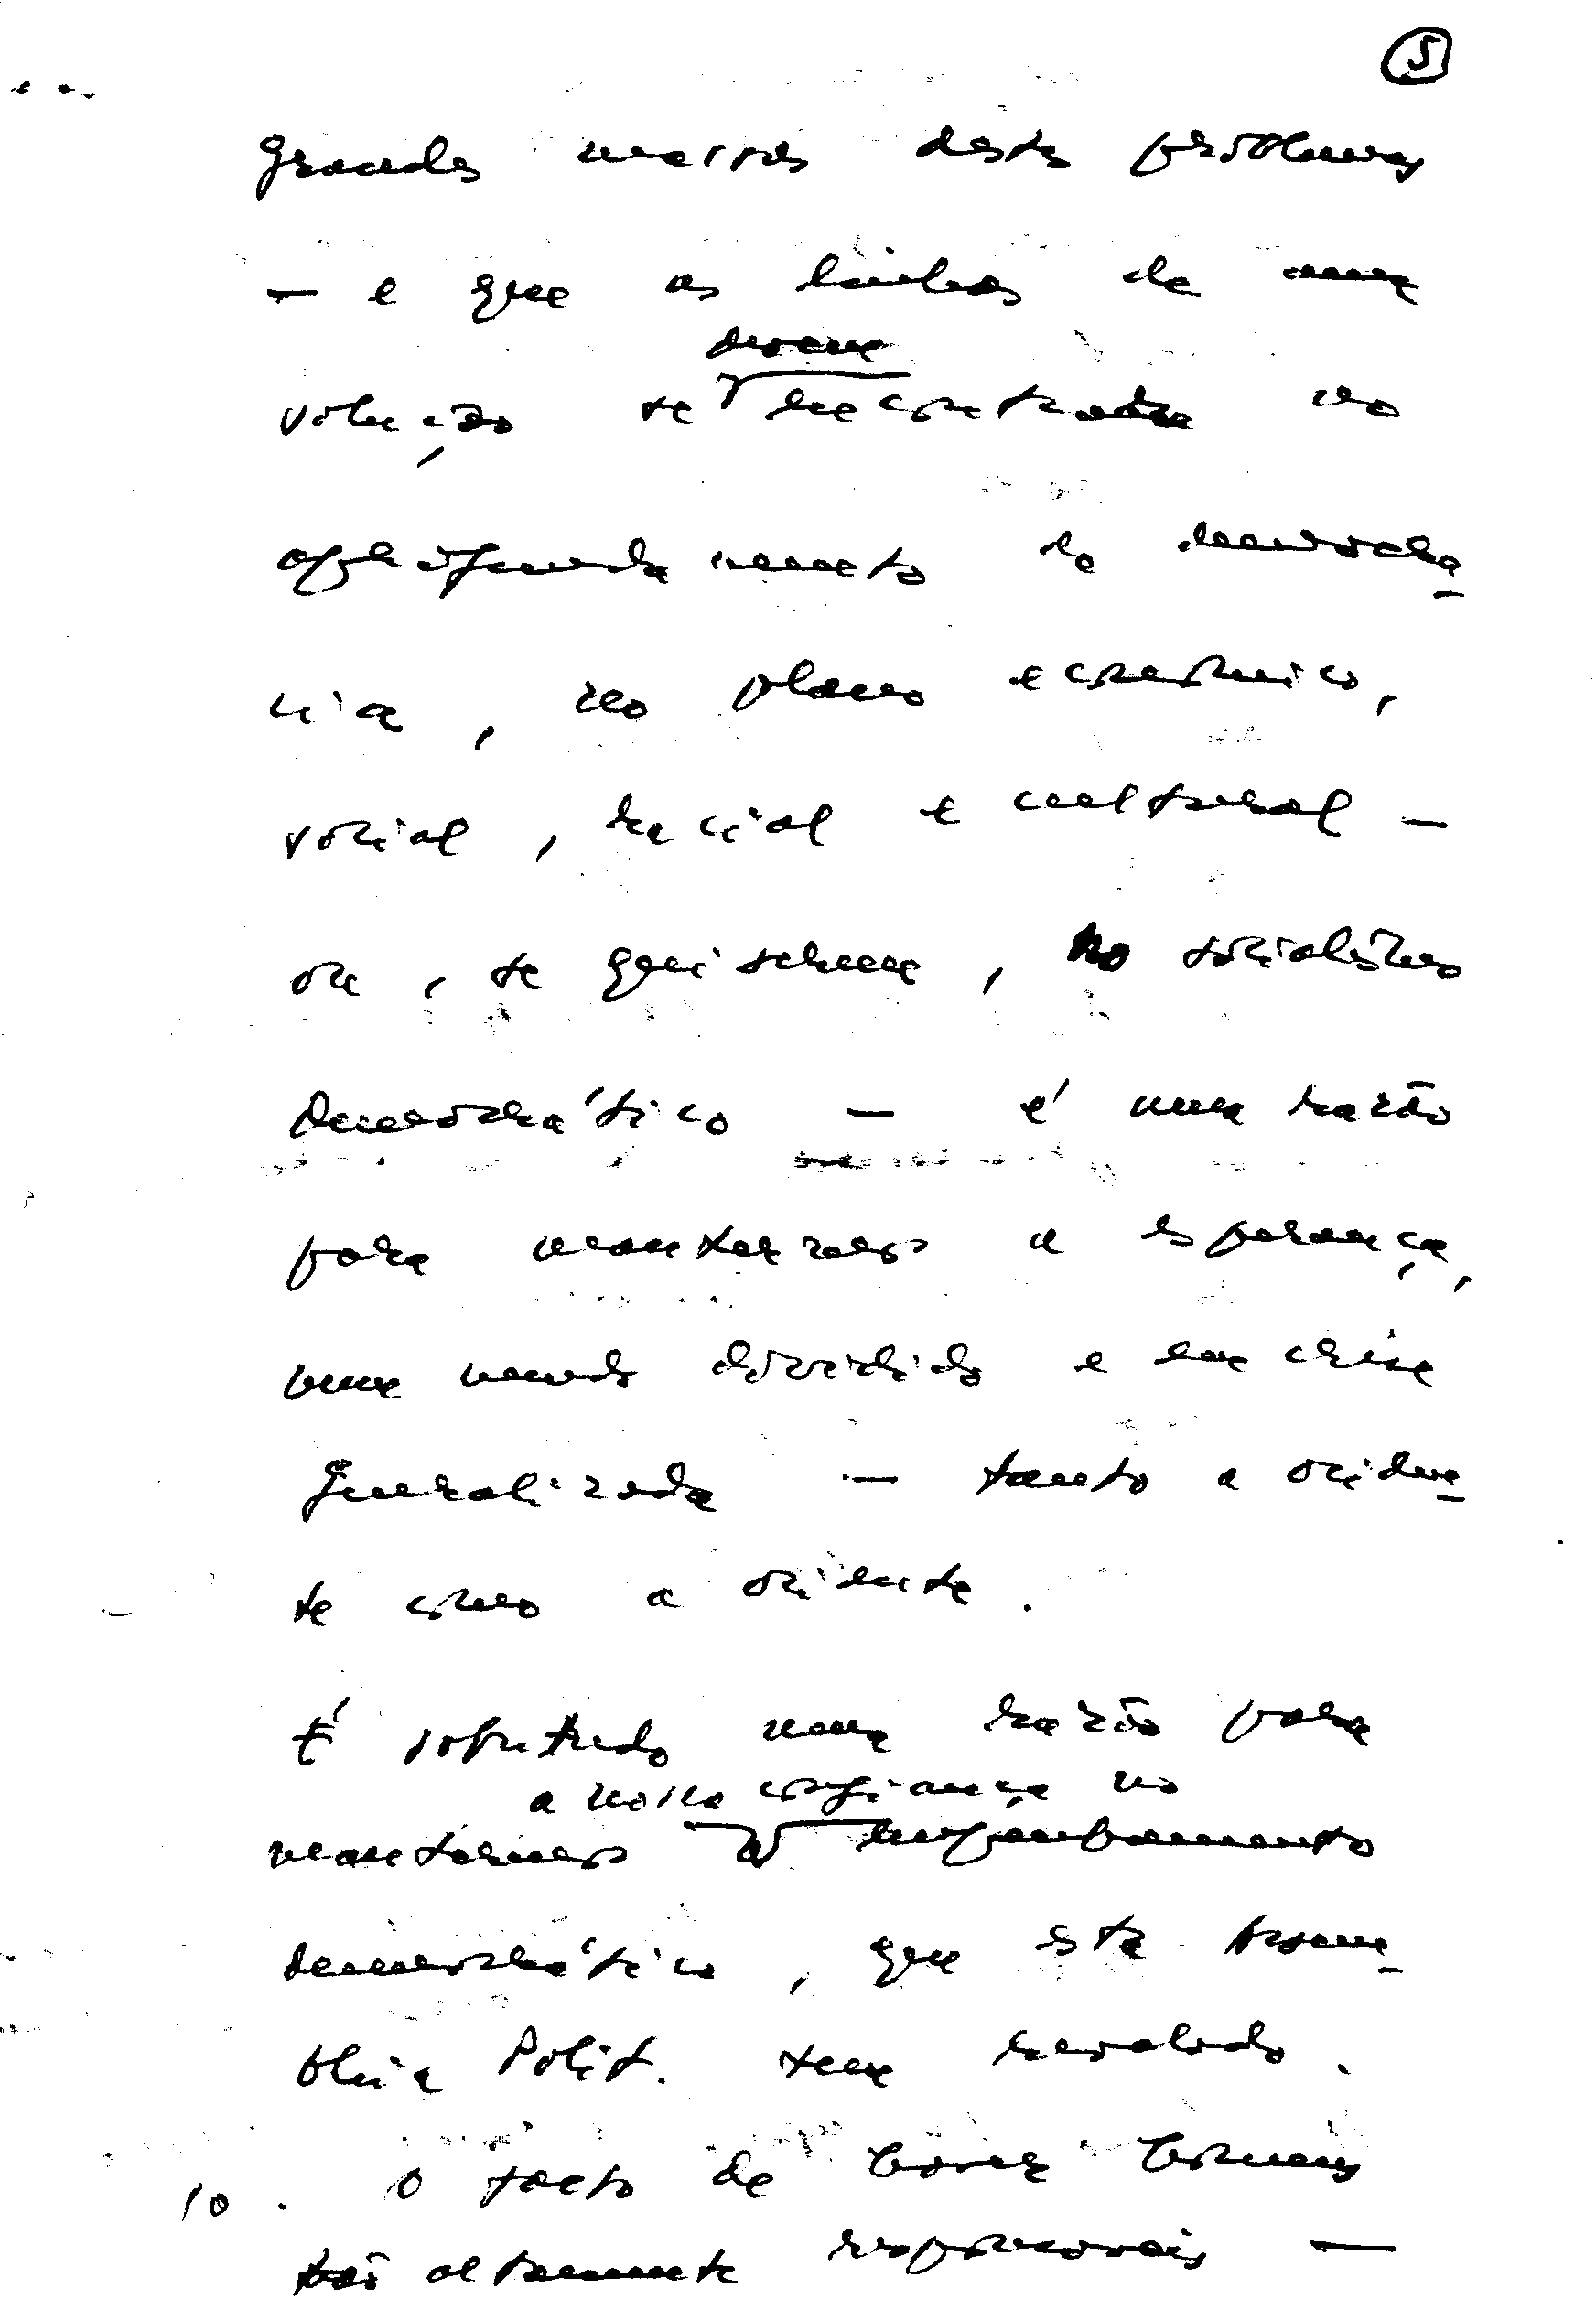 5
grandes massas destes problemas
— e que as linhas de uma
devem
solução se encontrar no
aprofundamento da democra-
cia, no plano económico,
social, racial e cultural —
ou, se quiserem, no socialismo
democrático — é uma razão
para mantermos a esperança,
num mundo dividido e em crise
generalizada — tanto a ociden-
te como a oriente.
É sobretudo uma razão para
a nossa confiança no
mantermos
democrático, que esta
Polít. tem revelado.
10. O facto de homens
tão altamente responsáveis —